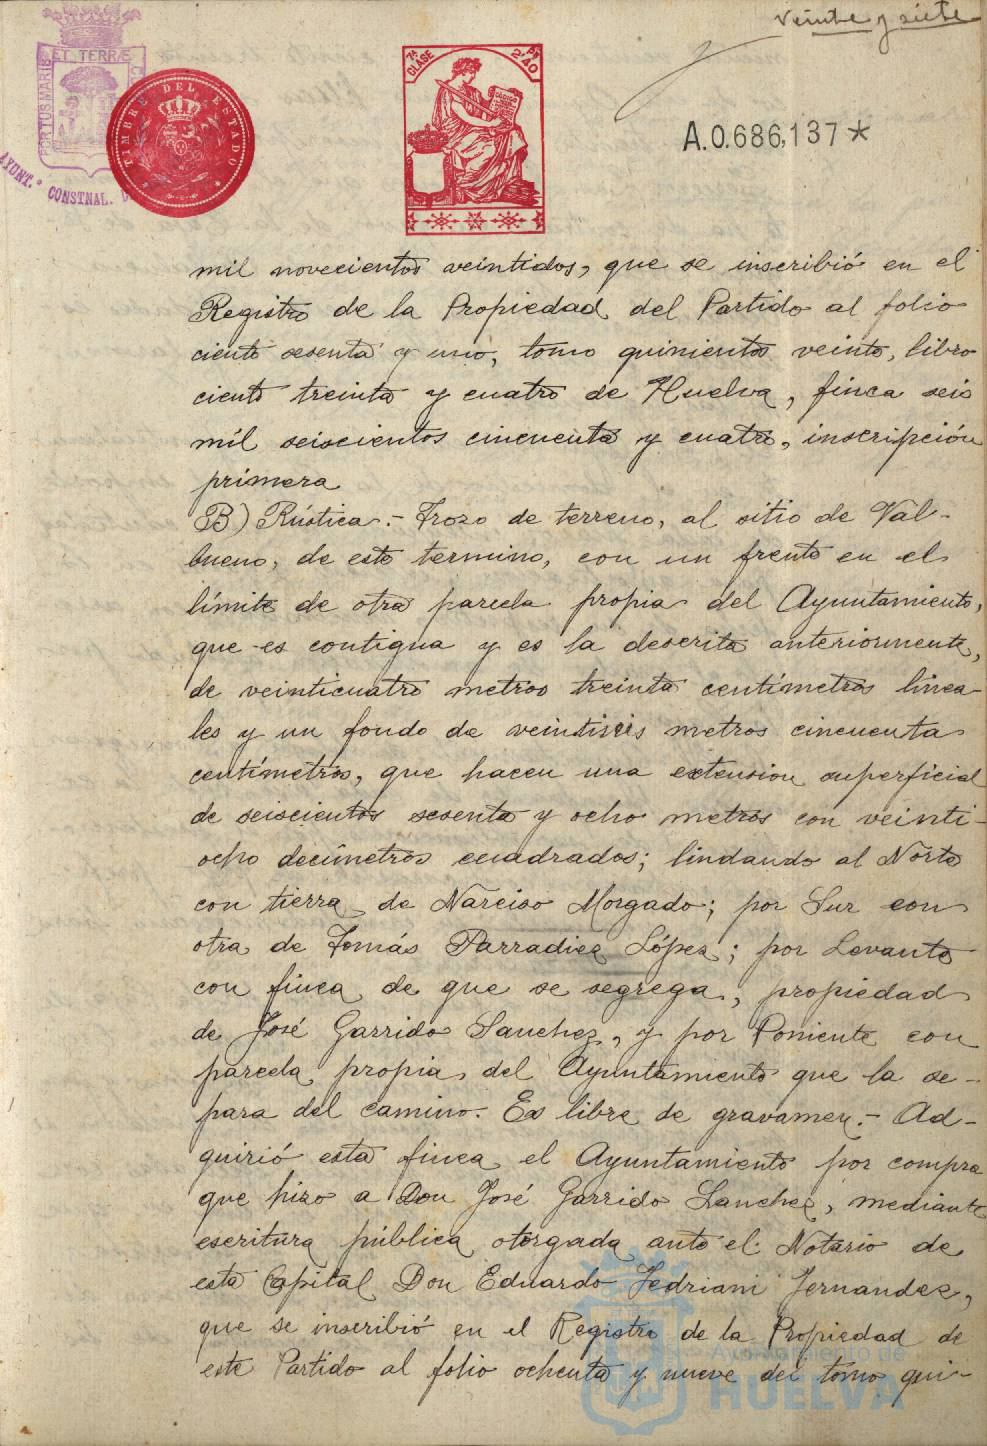 veinte y siete
ET TERRÆ
PORTUS MARIS
AYUNT.º CONSTNAL.
TIMBRE DEL ESTADO
7ª CLASE
2'40
A.0.686,137*
mil novecientos veintidos, que se inscribió en el
Registro de la Propiedad del Partido al folio
ciento sesenta y uno, tomo quinientos veinte, libro
ciento treinta y cuatro de Huelva, finca seis
mil seiscientos cincuenta y cuatro, inscripción
primera
B) Rústica.- Trozo de terreno, al sitio de Val-
bueno, de este termino, con un frente en el
límite de otra parcela propia del Ayuntamiento,
que es contigua y es la descrita anteriormente,
de veinticuatro metros treinta centímetros linea-
les y un fondo de veintiseis metros cincuenta
centímetros, que hacen una extension superficial
de seiscientos sesenta y ocho metros con veinti-
ocho decímetros cuadrados; lindando al Norte
con tierra de Narciso Morgado; por Sur con
otra de Tomás Parradiez López; por Levante
con finca de que se segrega, propiedad
de José Garrido Sanchez, y por Poniente con
parcela propia del Ayuntamiento que la se-
para del camino. Es libre de gravamen.- Ad-
quirió esta finca el Ayuntamiento por compra
que hizo a Don José Garrido Sanchez, mediante
escritura pública otorgada ante el Notario de
esta Capital Don Eduardo Fedriani Fernandez,
que se inscribió en el Registro de la Propiedad de
este Partido al folio ochenta y nueve del tomo qui-
Ayuntamiento de
HUELVA